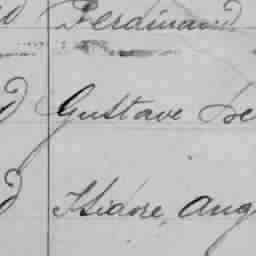 Ferdinand
Gustave
Isidore, Aug